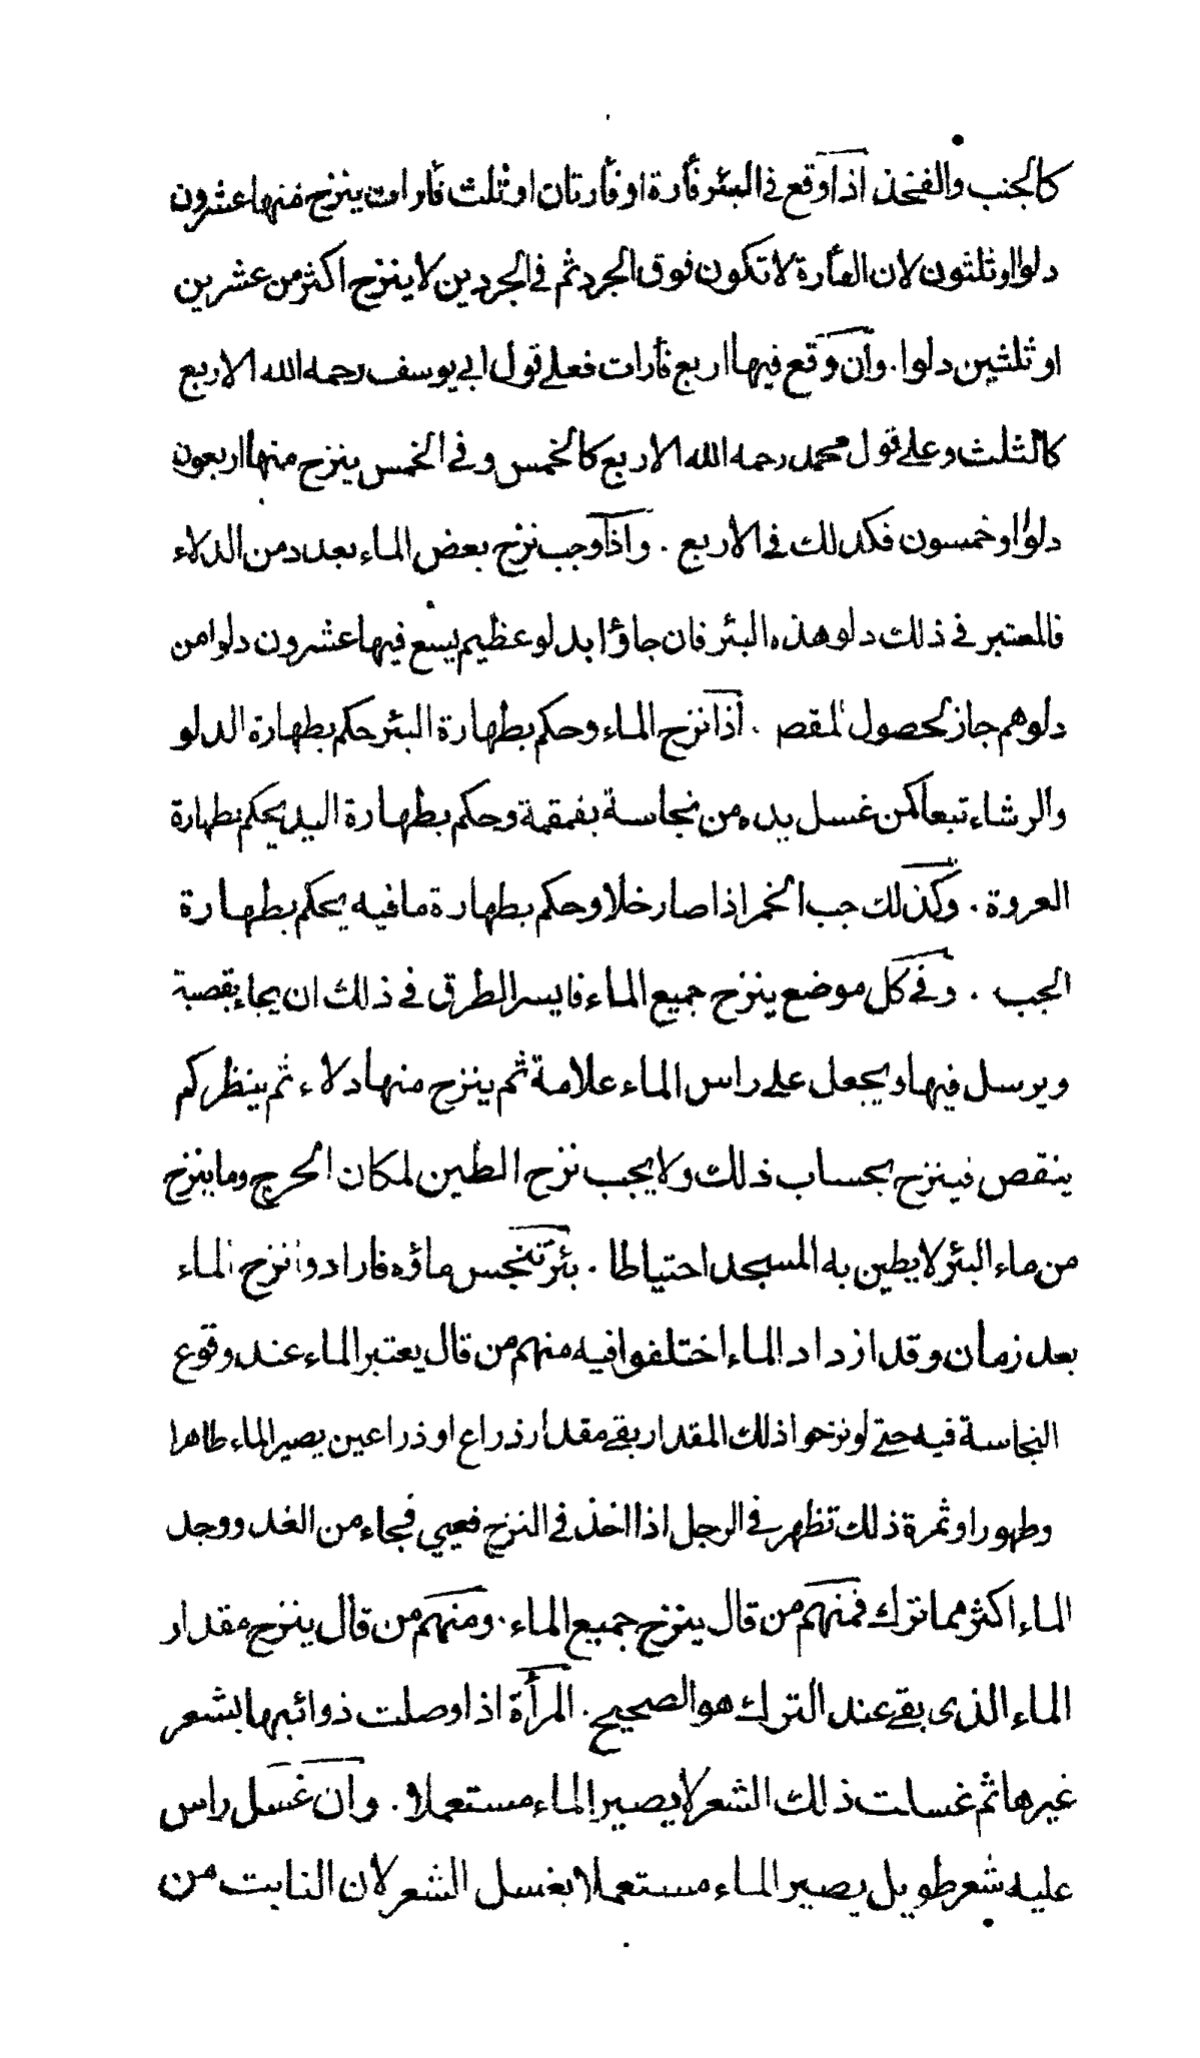 كالجنب والفخذ اذا وقع في البئر فأرة او فأرتان او ثلث فأرات ينزح منها عشرون
دلوا او ثلثون لان الفأرة لا تكون فوق الجرد ثم في الجردين لا ينزح اكثر من عشرين
او ثلثين دلوا . وان وقع فيها اربع فأرات فعلى قول ابي يوسف رحمه الله الاربع
كالثلث وعلى قول محمد رحمه الله الاربع كالخمس وفي الخمس ينزح منها اربعون
دلوا او خمسون فكذلك في الاربع . واذا وجب نزح بعض الماء بعدد من الدلاء
فالمعتبر في ذلك دلو هذه البئر فان جاؤا بدلو عظيم يسع فيها عشرون دلوا من
دلوهم جاز لحصول المقص . اذا نزح الماء وحكم بطهارة البئر حكم بطهارة الدلو
والرشاء تبعا كمن غسل يده من نجاسة بقمقمة وحكم بطهارة اليد يحكم بطهارة
العروة . وكذلك جب الخمر اذا صار خلا وحكم بطهارة ما فيه يحكم بطهارة
الجب . وفي كل موضع ينزح جميع الماء فايسر الطرق في ذلك ان يجاء بقصبة
ويرسل فيها ويجعل على راس الماء علامة ثم ينزح منها دلاء ثم ينظر كم
ينقص فينزح بحساب ذلك ولا يجب نزح الطين لمكان الحرج وما ينزح
من ماء البئر لا يطين به المسجد احتياطا . بئر تنجس ماؤه فارادوا نزح الماء
بعد زمان وقد ازداد الماء اختلفوا فيه منهم من قال يعتبر الماء عند وقوع
النجاسة فيه حتى لو نزحوا ذلك المقدار بقي مقدار ذراع او ذراعين يصير الماء طاهرا
وطهورا وثمرة ذلك تظهر في الرجل اذا اخذ في النزح فعيي فجاء من الغد ووجد
الماء اكثر مما ترك فمنهم من قال ينزح جميع الماء . ومنهم من قال ينزح مقدار
الماء الذى بقي عند الترك هو الصحيح . المرأة اذا وصلت ذوائبها بشعر
غيرها ثم غسلت ذلك الشعر لا يصير الماء مستعملا . وان غسل راس
عليه شعر طويل يصير الماء مستعملا بغسل الشعر لان النابت من